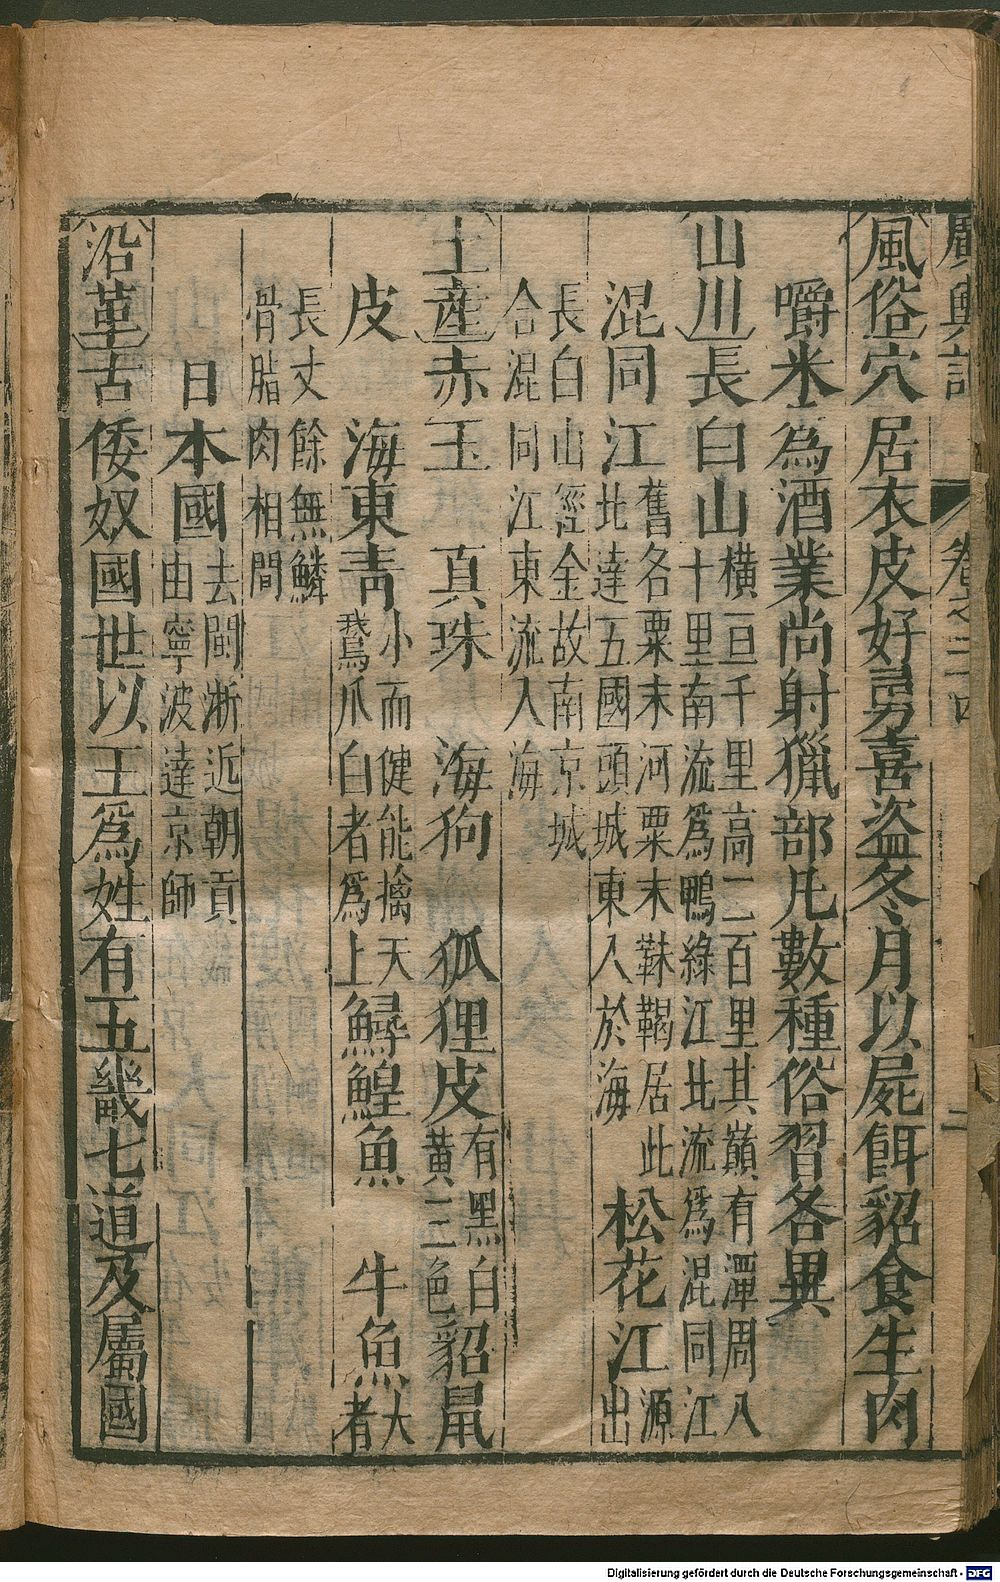 廣輿記
卷之二十四
二
風俗穴居衣皮好勇喜盜冬月以屍餌貂食生肉
嚼米為酒業尚射獵部凡數種俗習各異
山川長白山橫亘千里高二百里其巔有潭周八
十里南流為鴨綠江北流為混同江
混同江舊名粟末河粟末靺鞨居此
北達五國頭城東入於海
松花江源出
長白山經金故南京城
合混同江東流入海
土產赤玉 真珠 海狗 狐狸皮有黑白
黃三色
貂鼠
皮 海東青小而健能擒天
鵝爪白者為上
鱘鰉魚 牛魚大者
長丈餘無鱗
骨脂肉相間
日本國去閩浙近朝貢
由寧波達京師
沿革古倭奴國世以王為姓有五畿七道及屬國
Digitalisierung gefördert durch die Deutsche Forschungsgemeinschaft - DFG